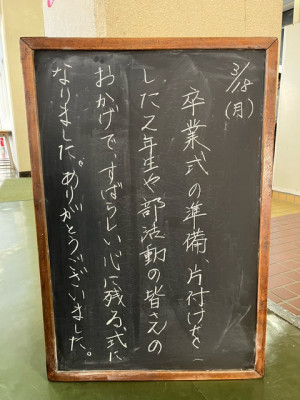 3/18(月)
卒業式の準備、片付けをし
した2年生や部活動の皆さんの
おかげで、すばらしい心に残る式に
なりました。ありがとうございました。